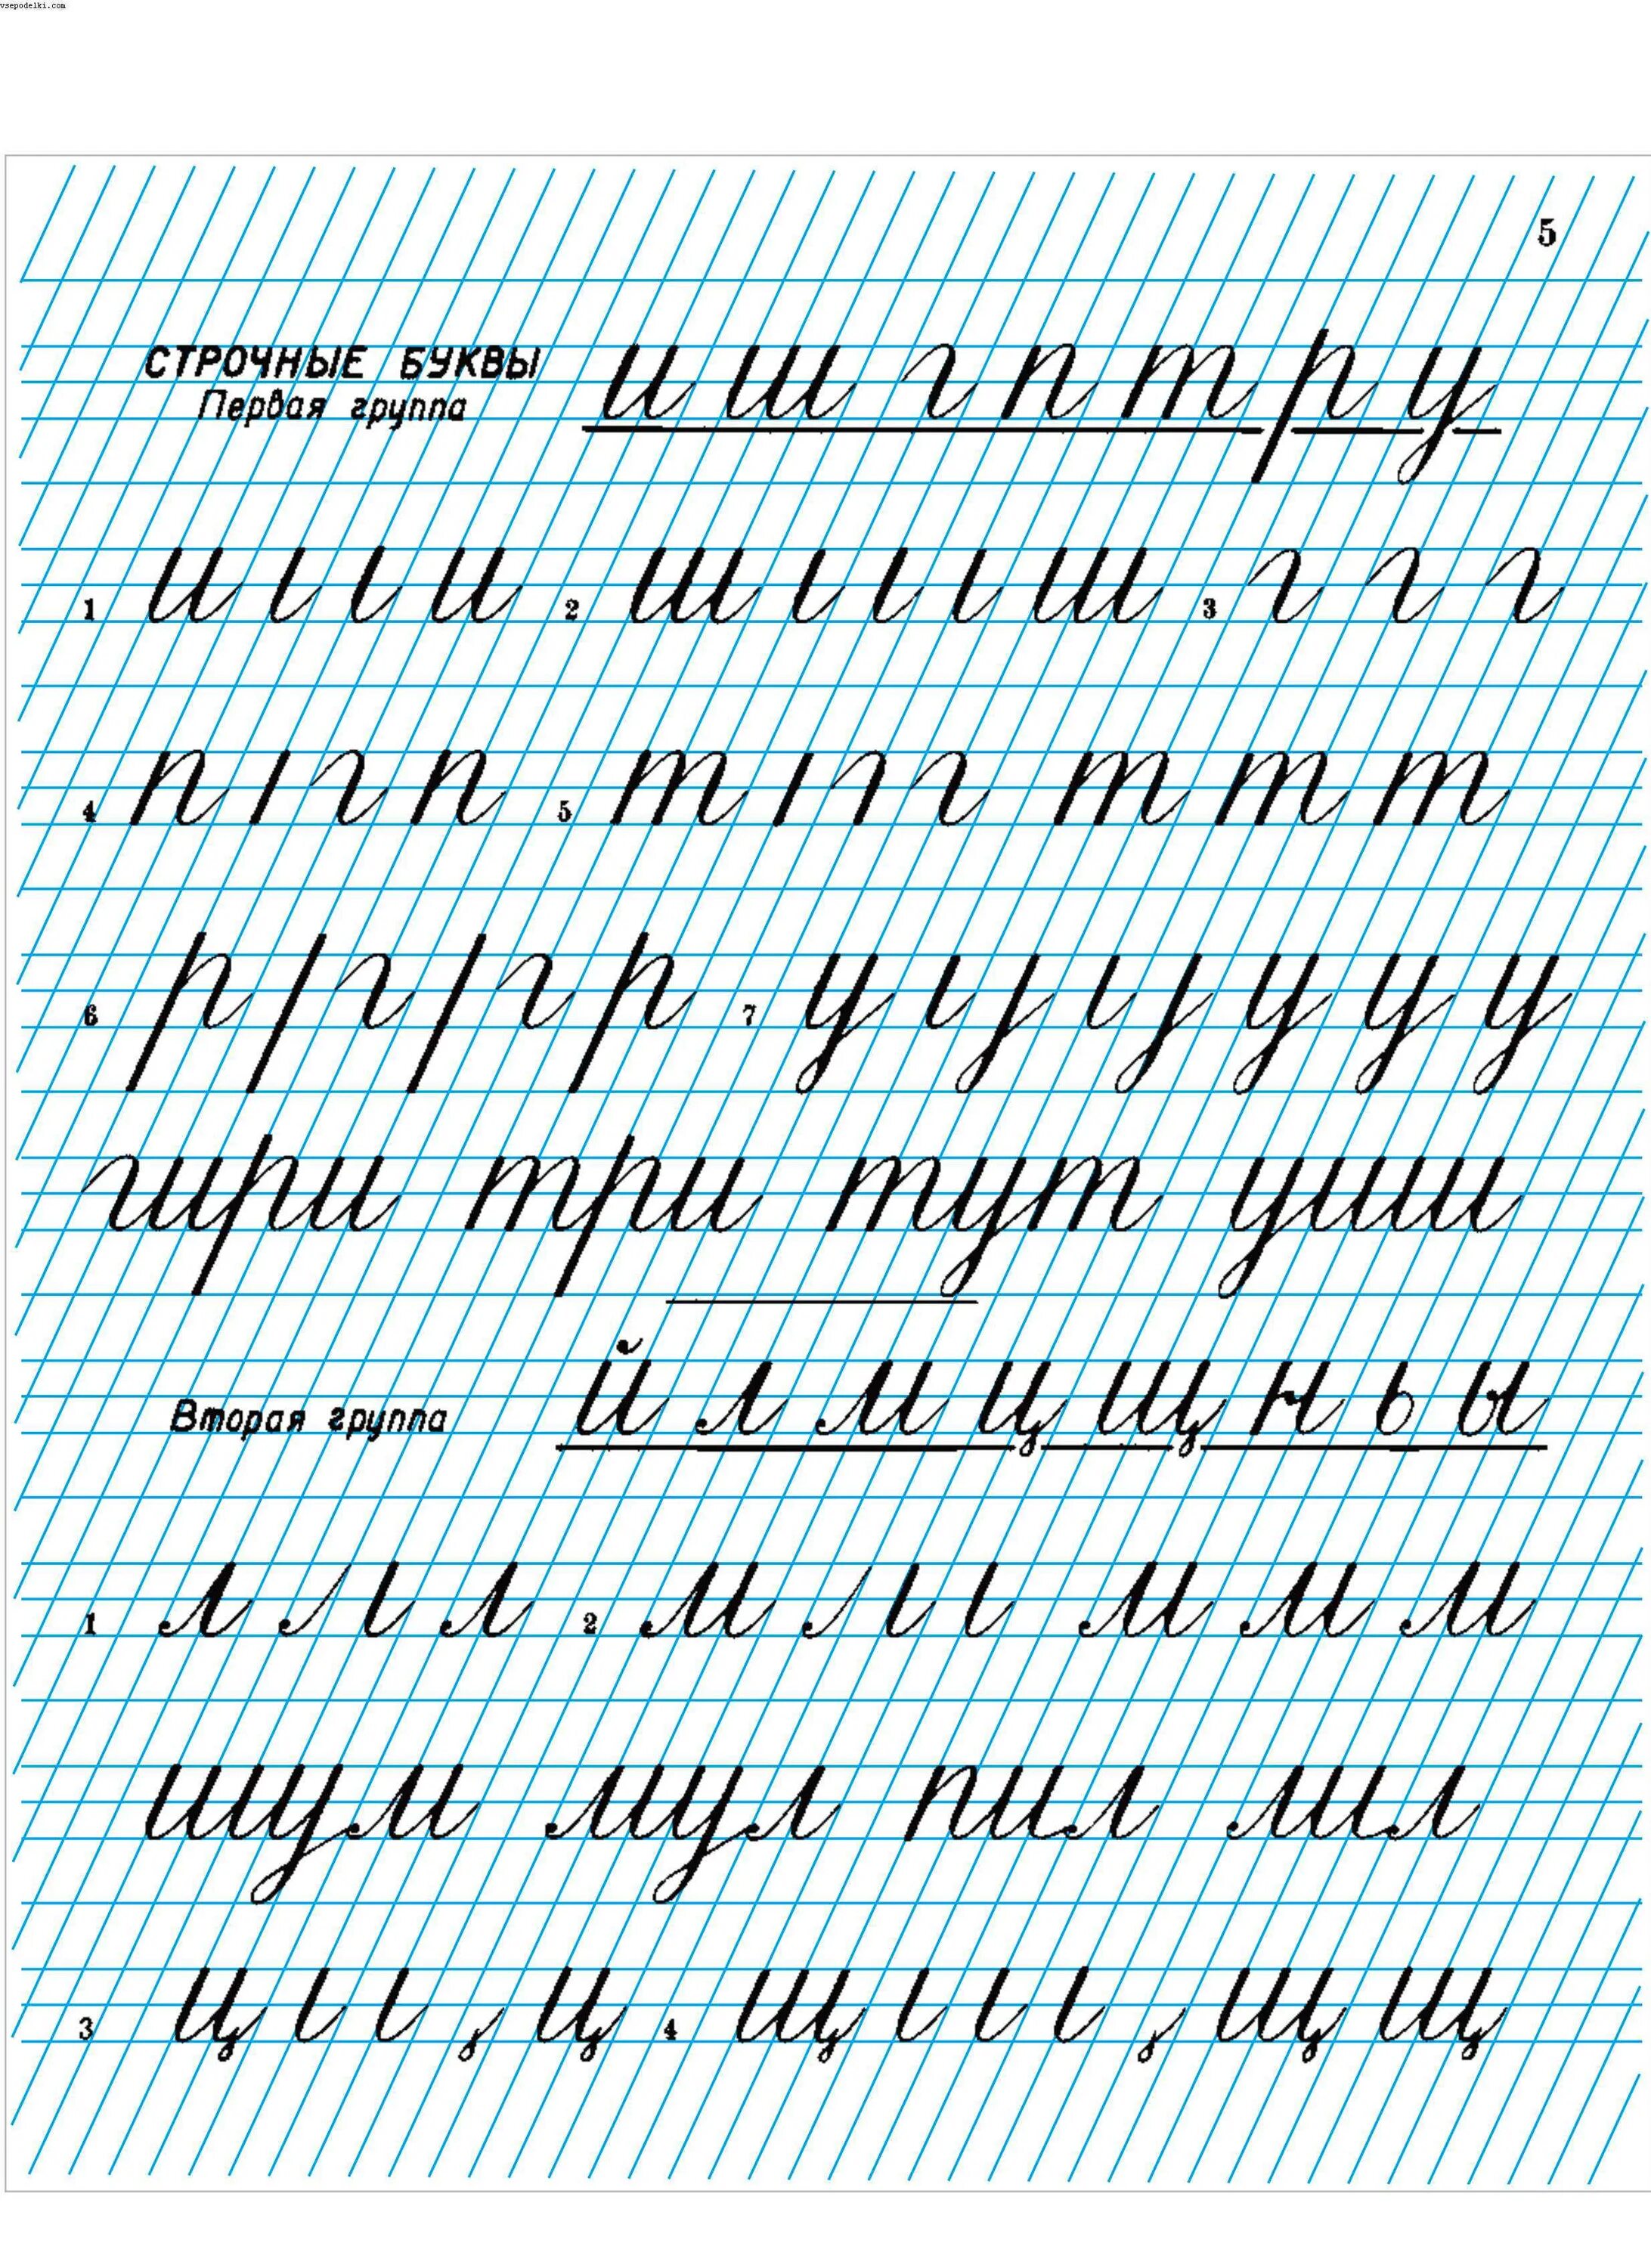 vsepodelki.com
5
СТРОЧНЫЕ БУКВЫ и ш г п т р у
Первая группа
1 и ι ι и 2 ш ι ι ι ш 3 г г г
4 п ı г п 5 т ı г г т т т
6 р ı г ı г р 7 у ι ȷ ι ȷ у у у
гири три тут уши
Вторая группа й л м ц щ н ь ы
1 л ι л 2 м ι ι м м м
шум мул пил мил
3 ц ι ι , ц 4 щ ι ι ι , щ щ